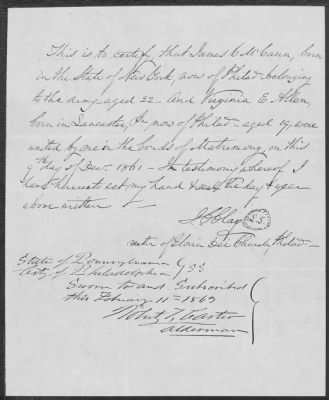 This is to certify that James C McCann, born
in the State of New York, now of Philada belonging
to the army aged 22 - And Virginia E Allen,
born in Lancaster, Pa now of Philada - aged 19, were
united by me in the bonds of Matrimony, on this
9th day of Decr. 1861 - In testimony whereof I
have hereunto set my hand & seal the day & year
above written
J C Clay
L.S.
rector of Gloria Dei Church, Philada -
State of Pennsylvania
City of Philadelphia } SS
Sworn to and Subscribed
this February 11th 1863
Robert T. Carter
Alderman